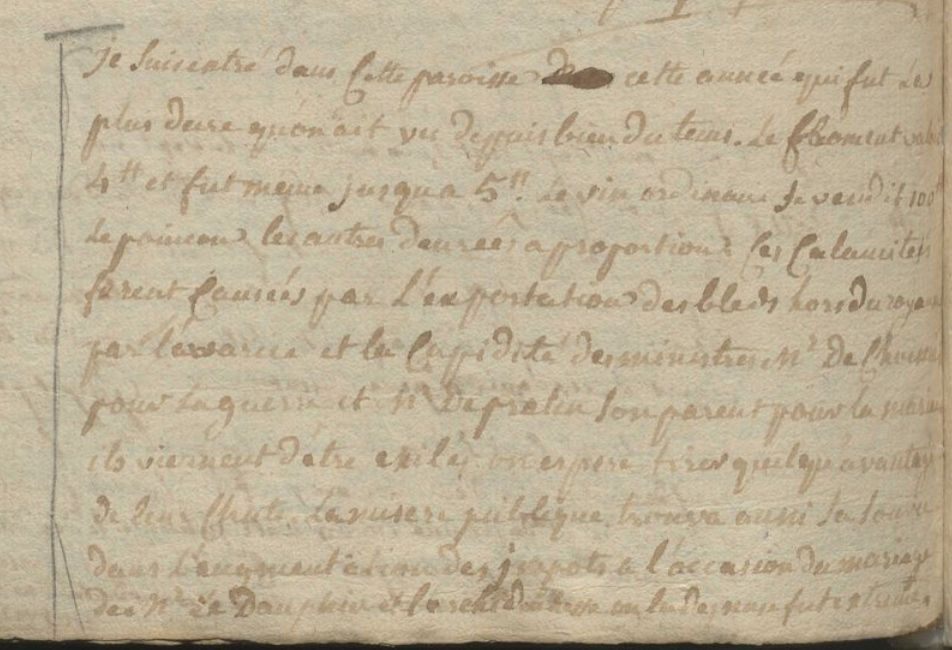 Je suis entré dans cette paroisse cette année qui fut la
plus dure qu'on ait vu depuis bien du tems. Le froment
4# et fut meme jusqua 5#. Le vin ordinaire se vendit 100#
le poincon, les autres denrées a proportion. Ces calamités
furent causées par l'exportation des bleds hors du
par l'avarice et la cupidité des ministres Mr De
pour la guerre et Mr De pralin son parent pour la
ils viennent d'etre exilés on espere tirer quelque avantage
de leur chute. La misere publique trouva aussi sa
dans l'augmentation des impots a l'occasion du mariage
de Mr le Dauphin et l'archiduchesse ou la depense fut